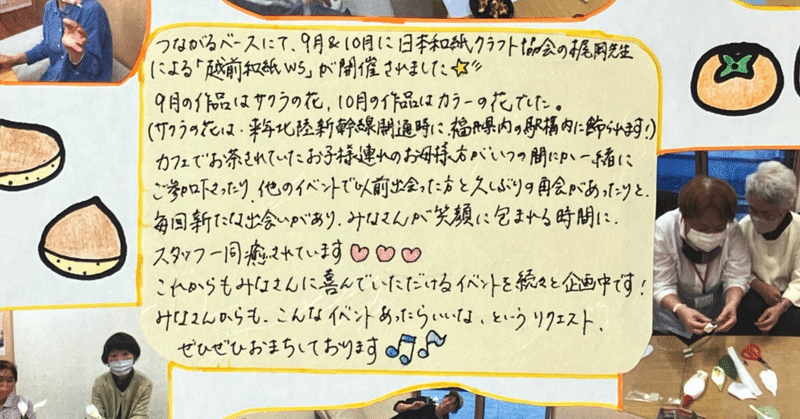 つながるベースにて、9月&10月に日本和紙クラフト協会の梶岡先生
による「越前和紙WS」が開催されました
9月の作品はサクラの花、10月の作品はカラーの花でした。
(サクラの花は、来年北陸新幹線開通時に、福井県内の駅構内に飾られます!)
カフェでお茶されていたお子様連れのお母様方がいつの間にか一緒に
ご参加下さったり、他のイベントで以前出会った方と久しぶりの再会があったりと、
毎回新たな出会いがあり、みなさんが笑顔に包まれる時間に、
スタッフ一同癒されています
これからもみなさんに喜んでいただけるイベントを続々と企画中です!
みなさんからも、こんなイベントあったらいいな、というリクエスト、
ぜひぜひおまちしております